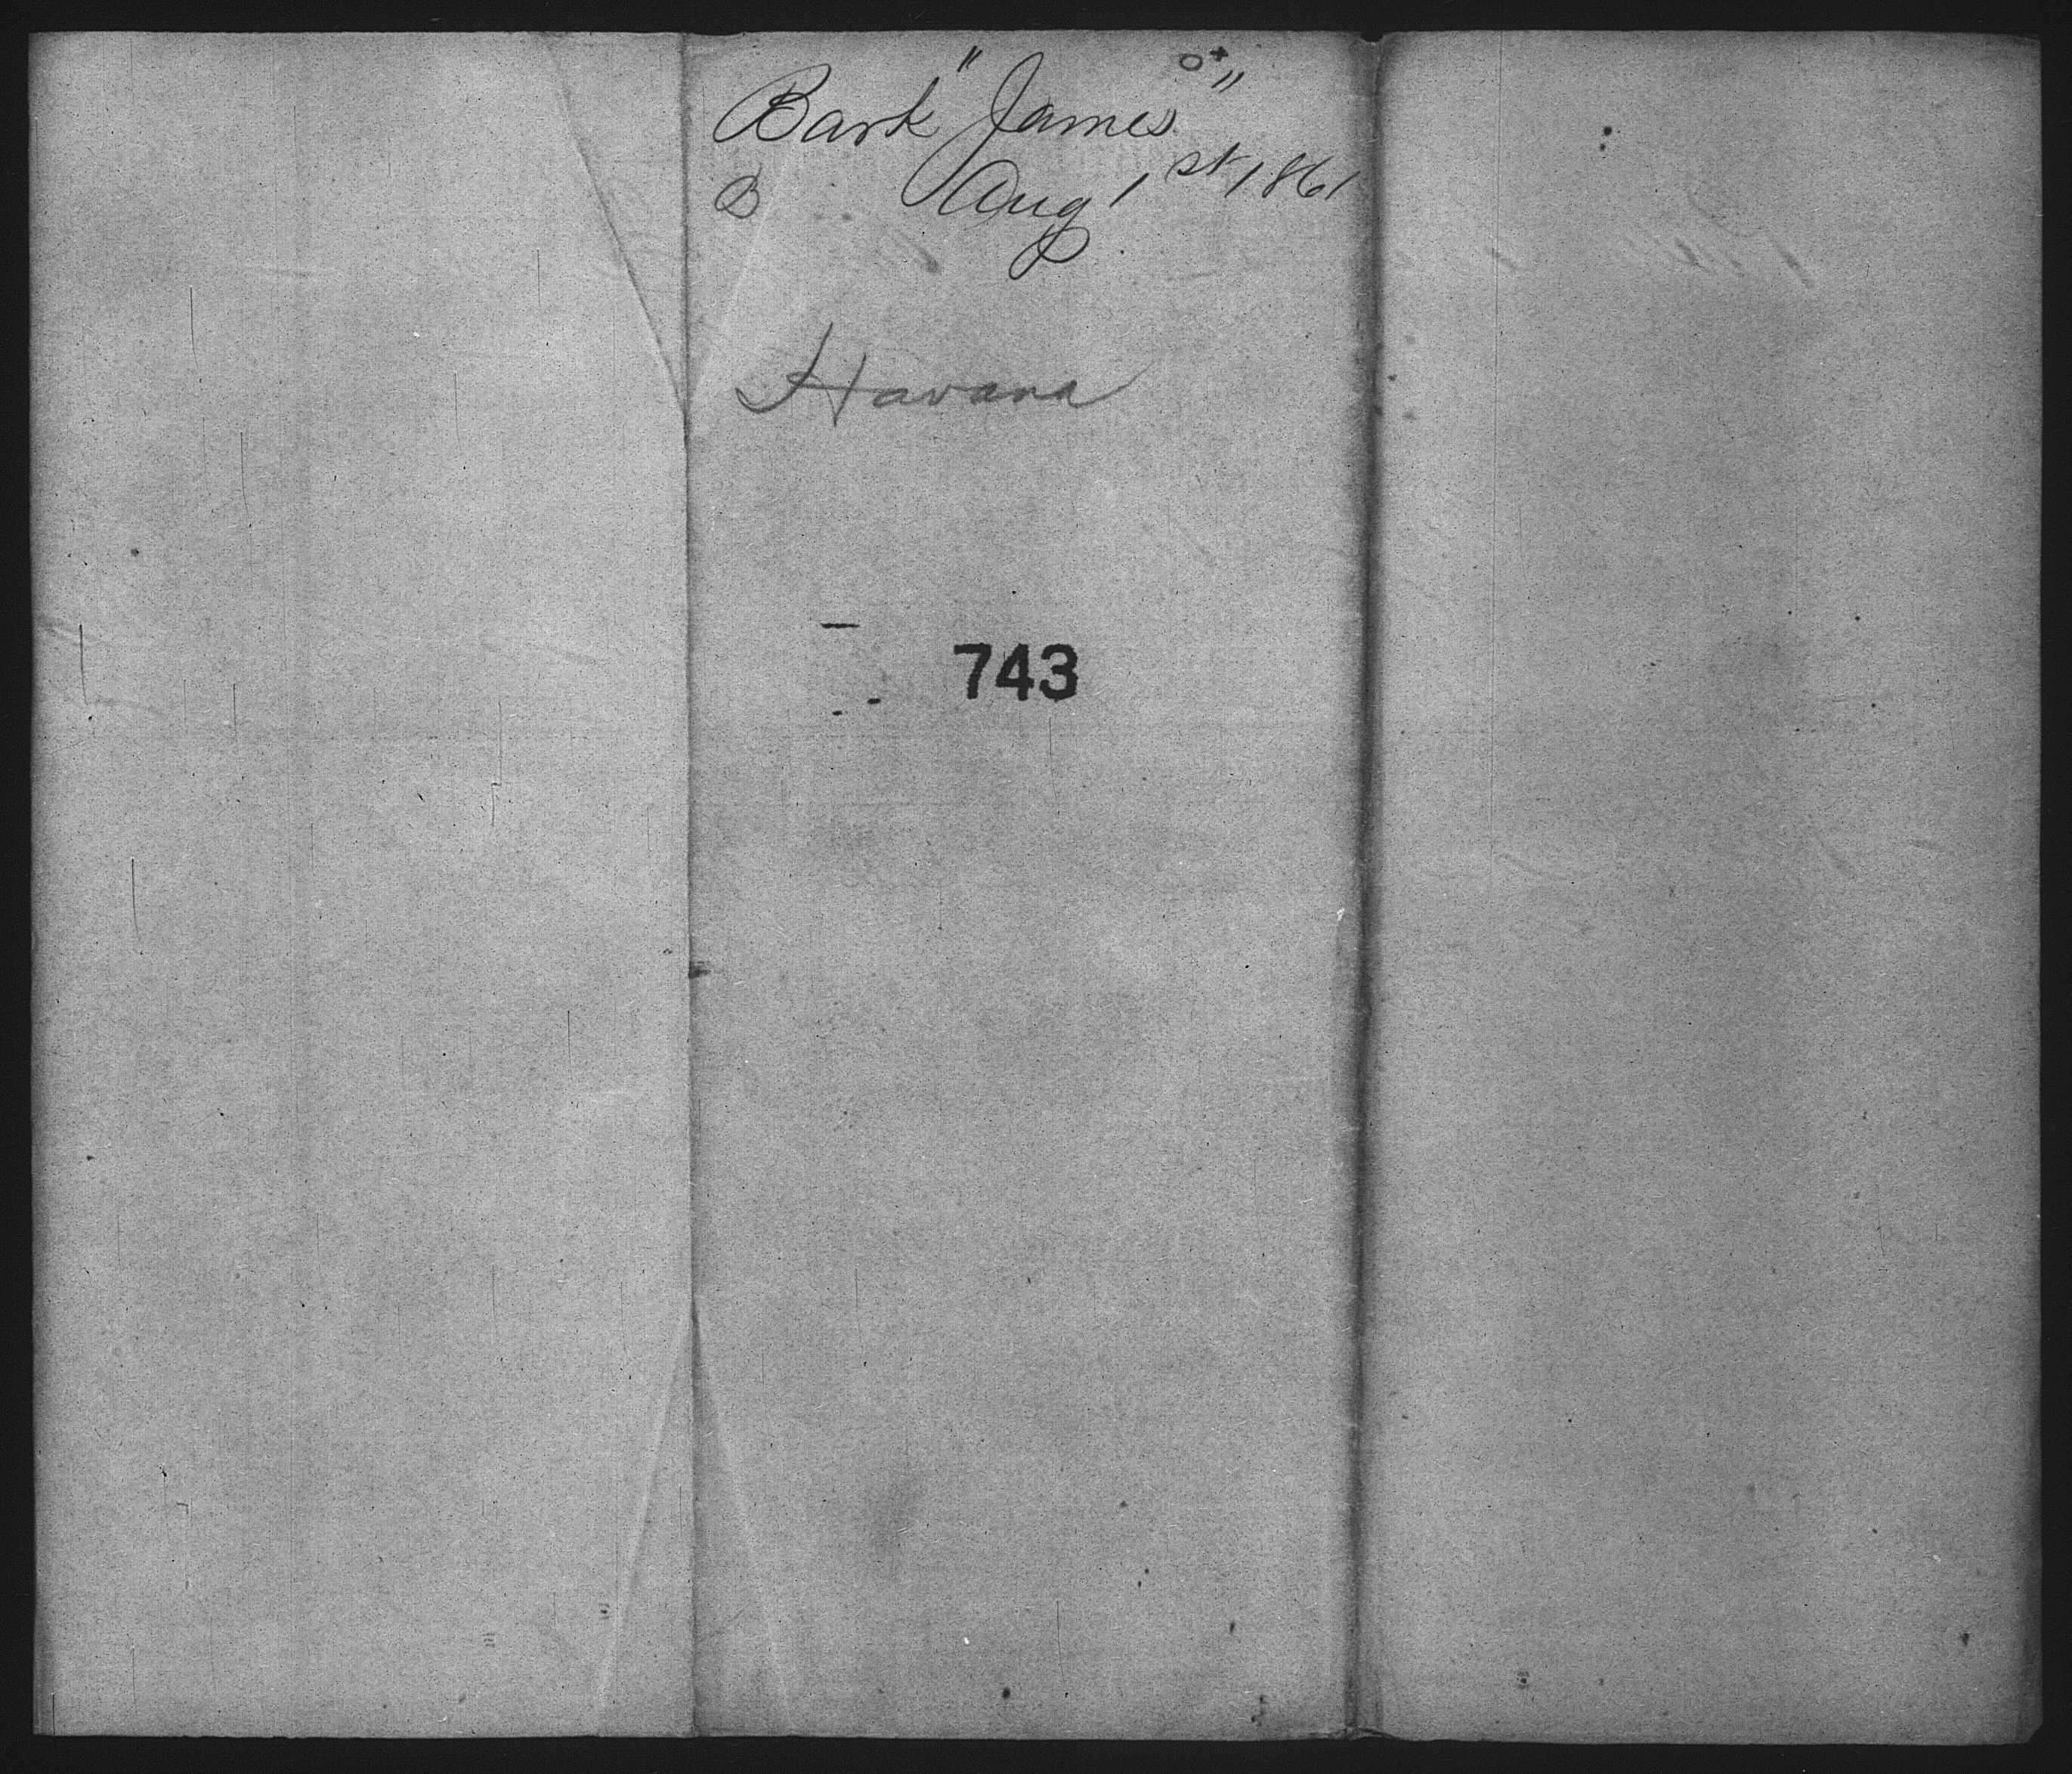 Bark "James"
B Aug 1st 1861
Havana
743